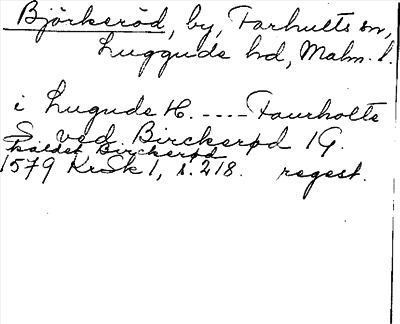 Björkeröd, by, Farhults sn,
Luggude hd, Malm. l.
i Lugude H. ---- Faurholte
S. ved Birckerød 1 G.
kaldet Birckerød
1579 KrSk 1, s. 218. regest.